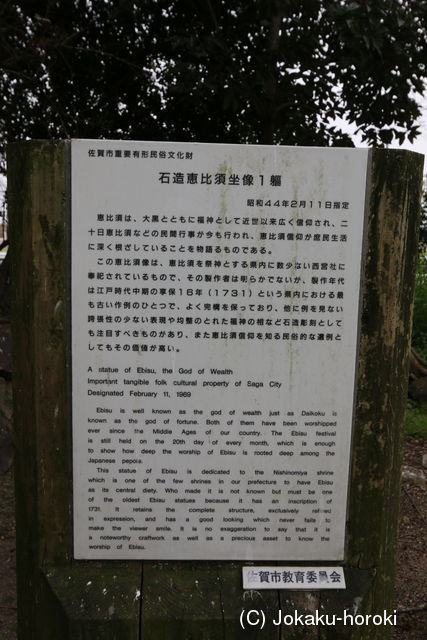 佐賀市重要有形民俗文化財
石造恵比須坐像１軀
昭和４４年２月１１日指定
恵比須は、大黒とともに福神として近世以来広く信仰され、二
十日恵比須などの民間行事が今も行われ、恵比須信仰が庶民生活
に深く根ざしていることを物語るものである。
この恵比須像は、恵比須を祭神とする県内に数少ない西宮社に
奉祀されているもので、その製作者は明らかでないが、製作年代
は江戸時代中期の享保１６年（１７３１）という県内における最
も古い作例のひとつで、よく完構を保っており、他に例を見ない
誇張性の少ない表現や均整のとれた福神の相など石造彫刻として
も注目すべきものがあり、また恵比須信仰を知る民俗的な遺例と
してもその価値が高い。
A statue of Ebisu, the God of Wealth
Important tangible folk cultural property of Saga City
Designated February 11, 1969
Ebisu is well known as the god of wealth just as Daikoku is
known as the god of fortune. Both of them have been worshipped
ever since the Middle Ages of our country. The Ebisu festival
is still held on the 20th day of every month, which is enough
to show how deep the worship of Ebisu is rooted deep among the
Japanese people.
This statue of Ebisu is dedicated to the Nishinomiya shrine
which is one of the few shrines in our prefecture to have Ebisu
as its central diety. Who made it is not known but must be one
of the oldest Ebisu statues because it has an inscription of
1731. It retains the complete structure, exclusively refined
in expression, and has a good looking which never fails to
make the viewer smile. It is no exaggeration to say that it is
a noteworthy craftwork as well as a precious asset to know the
worship of Ebisu.
佐賀市教育委員会
(C) Jokaku-horoki